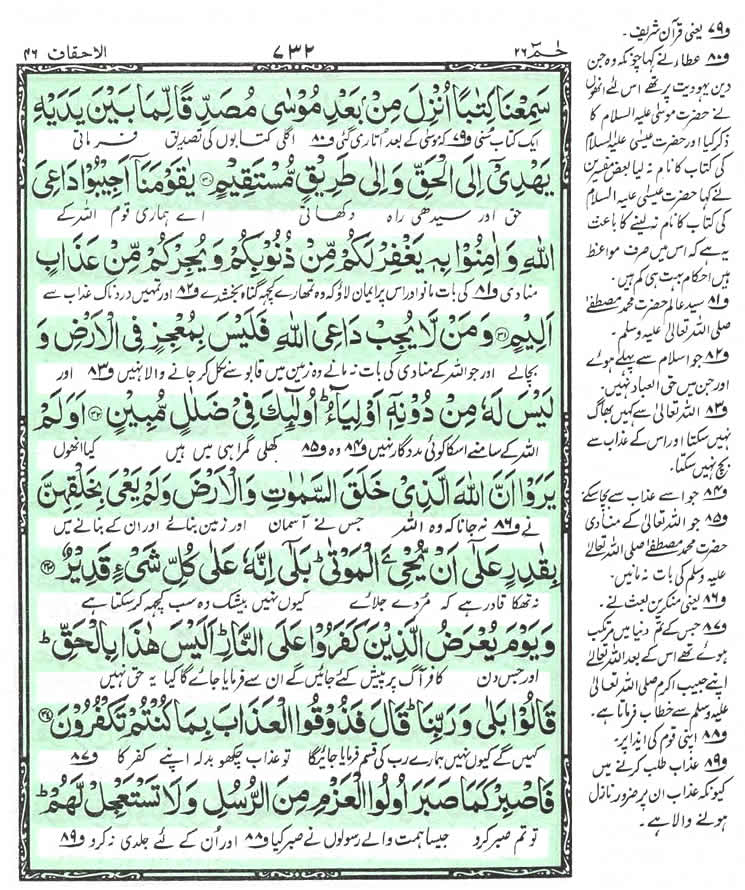 حٰمٓ ٢٦
٧٣٢
الاحقاف ٤٦
سَمِعْنَا كِتٰبًا اُنْزِلَ مِنْۢ بَعْدِ مُوْسٰى مُصَدِّقًا لِّمَا بَيْنَ يَدَيْهِ
ایک کتاب سنی و٧٩ کہ موسٰی کے بعد اتاری گئی و٨٠ اگلی کتابوں کی تصدیق فرماتی
يَهْدِيْٓ اِلَى الْحَقِّ وَاِلٰى طَرِيْقٍ مُّسْتَقِيْمٍ ۝٣٠ يٰقَوْمَنَآ اَجِيْبُوْا دَاعِيَ
حق اور سیدھی راہ دکھاتی اے ہماری قوم اللہ کے
اللّٰهِ وَاٰمِنُوْا بِهٖ يَغْفِرْ لَكُمْ مِّنْ ذُنُوْبِكُمْ وَيُجِرْكُمْ مِّنْ عَذَابٍ
منادی و٨١ کی بات مانو اور اس پر ایمان لاؤ کہ وہ تمہارے کچھ گناہ بخشدے و٨٢ اور تمہیں دردناک عذاب سے
اَلِيْمٍ ۝٣١ وَمَنْ لَّا يُجِبْ دَاعِيَ اللّٰهِ فَلَيْسَ بِمُعْجِزٍ فِي الْاَرْضِ وَ
بچالے اور جو اللہ کے منادی کی بات نہ مانے وہ زمین میں قابو سے نکل کر جانے والا نہیں و٨٣ اور
لَيْسَ لَهٗ مِنْ دُوْنِهٖٓ اَوْلِيَآءُ ؕ اُولٰٓئِكَ فِيْ ضَلٰلٍ مُّبِيْنٍ ۝٣٢ اَوَلَمْ
اللہ کے سامنے اسکا کوئی مددگار نہیں و٨٤ وہ و٨٥ کھلی گمراہی میں ہیں کیا انھوں
يَرَوْا اَنَّ اللّٰهَ الَّذِيْ خَلَقَ السَّمٰوٰتِ وَالْاَرْضَ وَلَمْ يَعْيَ بِخَلْقِهِنَّ
نے و٨٦ نہ جانا کہ وہ اللہ جس نے آسمان اور زمین بنائے اور ان کے بنانے میں
بِقٰدِرٍ عَلٰٓى اَنْ يُّحْيِۦَ الْمَوْتٰى ؕ بَلٰٓى اِنَّهٗ عَلٰى كُلِّ شَيْءٍ قَدِيْرٌ ۝٣٣
نہ تھکا قادر ہے کہ مُردے جِلائے کیوں نہیں بیشک وہ سب کچھ کرسکتا ہے
وَيَوْمَ يُعْرَضُ الَّذِيْنَ كَفَرُوْا عَلَى النَّارِ ؕ اَلَيْسَ هٰذَا بِالْحَقِّ ؕ
اور جس دن کافر آگ پر پیش کئے جائیں گے ان سے فرمایا جائے گا کیا یہ حق نہیں
قَالُوْا بَلٰى وَرَبِّنَا ؕ قَالَ فَذُوْقُوا الْعَذَابَ بِمَا كُنْتُمْ تَكْفُرُوْنَ ۝٣٤
کہیں گے کیوں نہیں ہمارے رب کی قسم فرمایا جائیگا تو عذاب چکھو بدلہ اپنے کفر کا و٨٧
فَاصْبِرْ كَمَا صَبَرَ اُولُوا الْعَزْمِ مِنَ الرُّسُلِ وَلَا تَسْتَعْجِلْ لَّهُمْ ؕ
تو تم صبر کرو جیسا ہمت والے رسولوں نے صبر کیا و٨٨ اور اُن کے لئے جلدی نہ کرو و٨٩
و٧٩ یعنی قرآن شریف۔
و٨٠ عطاء نے کہا چونکہ وہ جن
دین یہودیت پر تھے اس لئے انھوں
نے حضرت موسٰی علیہ السلام کا
ذکر کیا اور حضرت عیسٰی علیہ السلام
کی کتاب کا نام نہ لیا بعض مفسرین
نے کہا حضرت عیسٰی علیہ السلام
کی کتاب کا نام نہ لینے کا باعث
یہ ہے کہ اس میں صرف مواعظ
ہیں احکام بہت ہی کم ہیں۔
و٨١ سید عالم حضرت محمد مصطفےٰ
صلی اللہ تعالیٰ علیہ وسلم۔
و٨٢ جو اسلام سے پہلے ہوئے
اور جن میں حق العباد نہیں۔
و٨٣ اللہ تعالیٰ سے کہیں بھاگ
نہیں سکتا اور اس کے عذاب سے
بچ نہیں سکتا۔
و٨٤ جو اسے عذاب سے بچاسکے
و٨٥ جو اللہ تعالیٰ کے منادی
حضرت محمد مصطفےٰ صلی اللہ تعالےٰ
علیہ وسلم کی بات نہ مانیں۔
و٨٦ یعنی منکرین بعث نے۔
و٨٧ جس کے تم دنیا میں مرتکب
ہوئے تھے اس کے بعد اللہ تعالےٰ
اپنے حبیب اکرم صلی اللہ تعالیٰ
علیہ وسلم سے خطاب فرماتا ہے۔
و٨٨ اپنی قوم کی ایذا پر۔
و٨٩ عذاب طلب کرنے میں
کیونکہ عذاب ان پر ضرور نازل
ہونے والا ہے۔